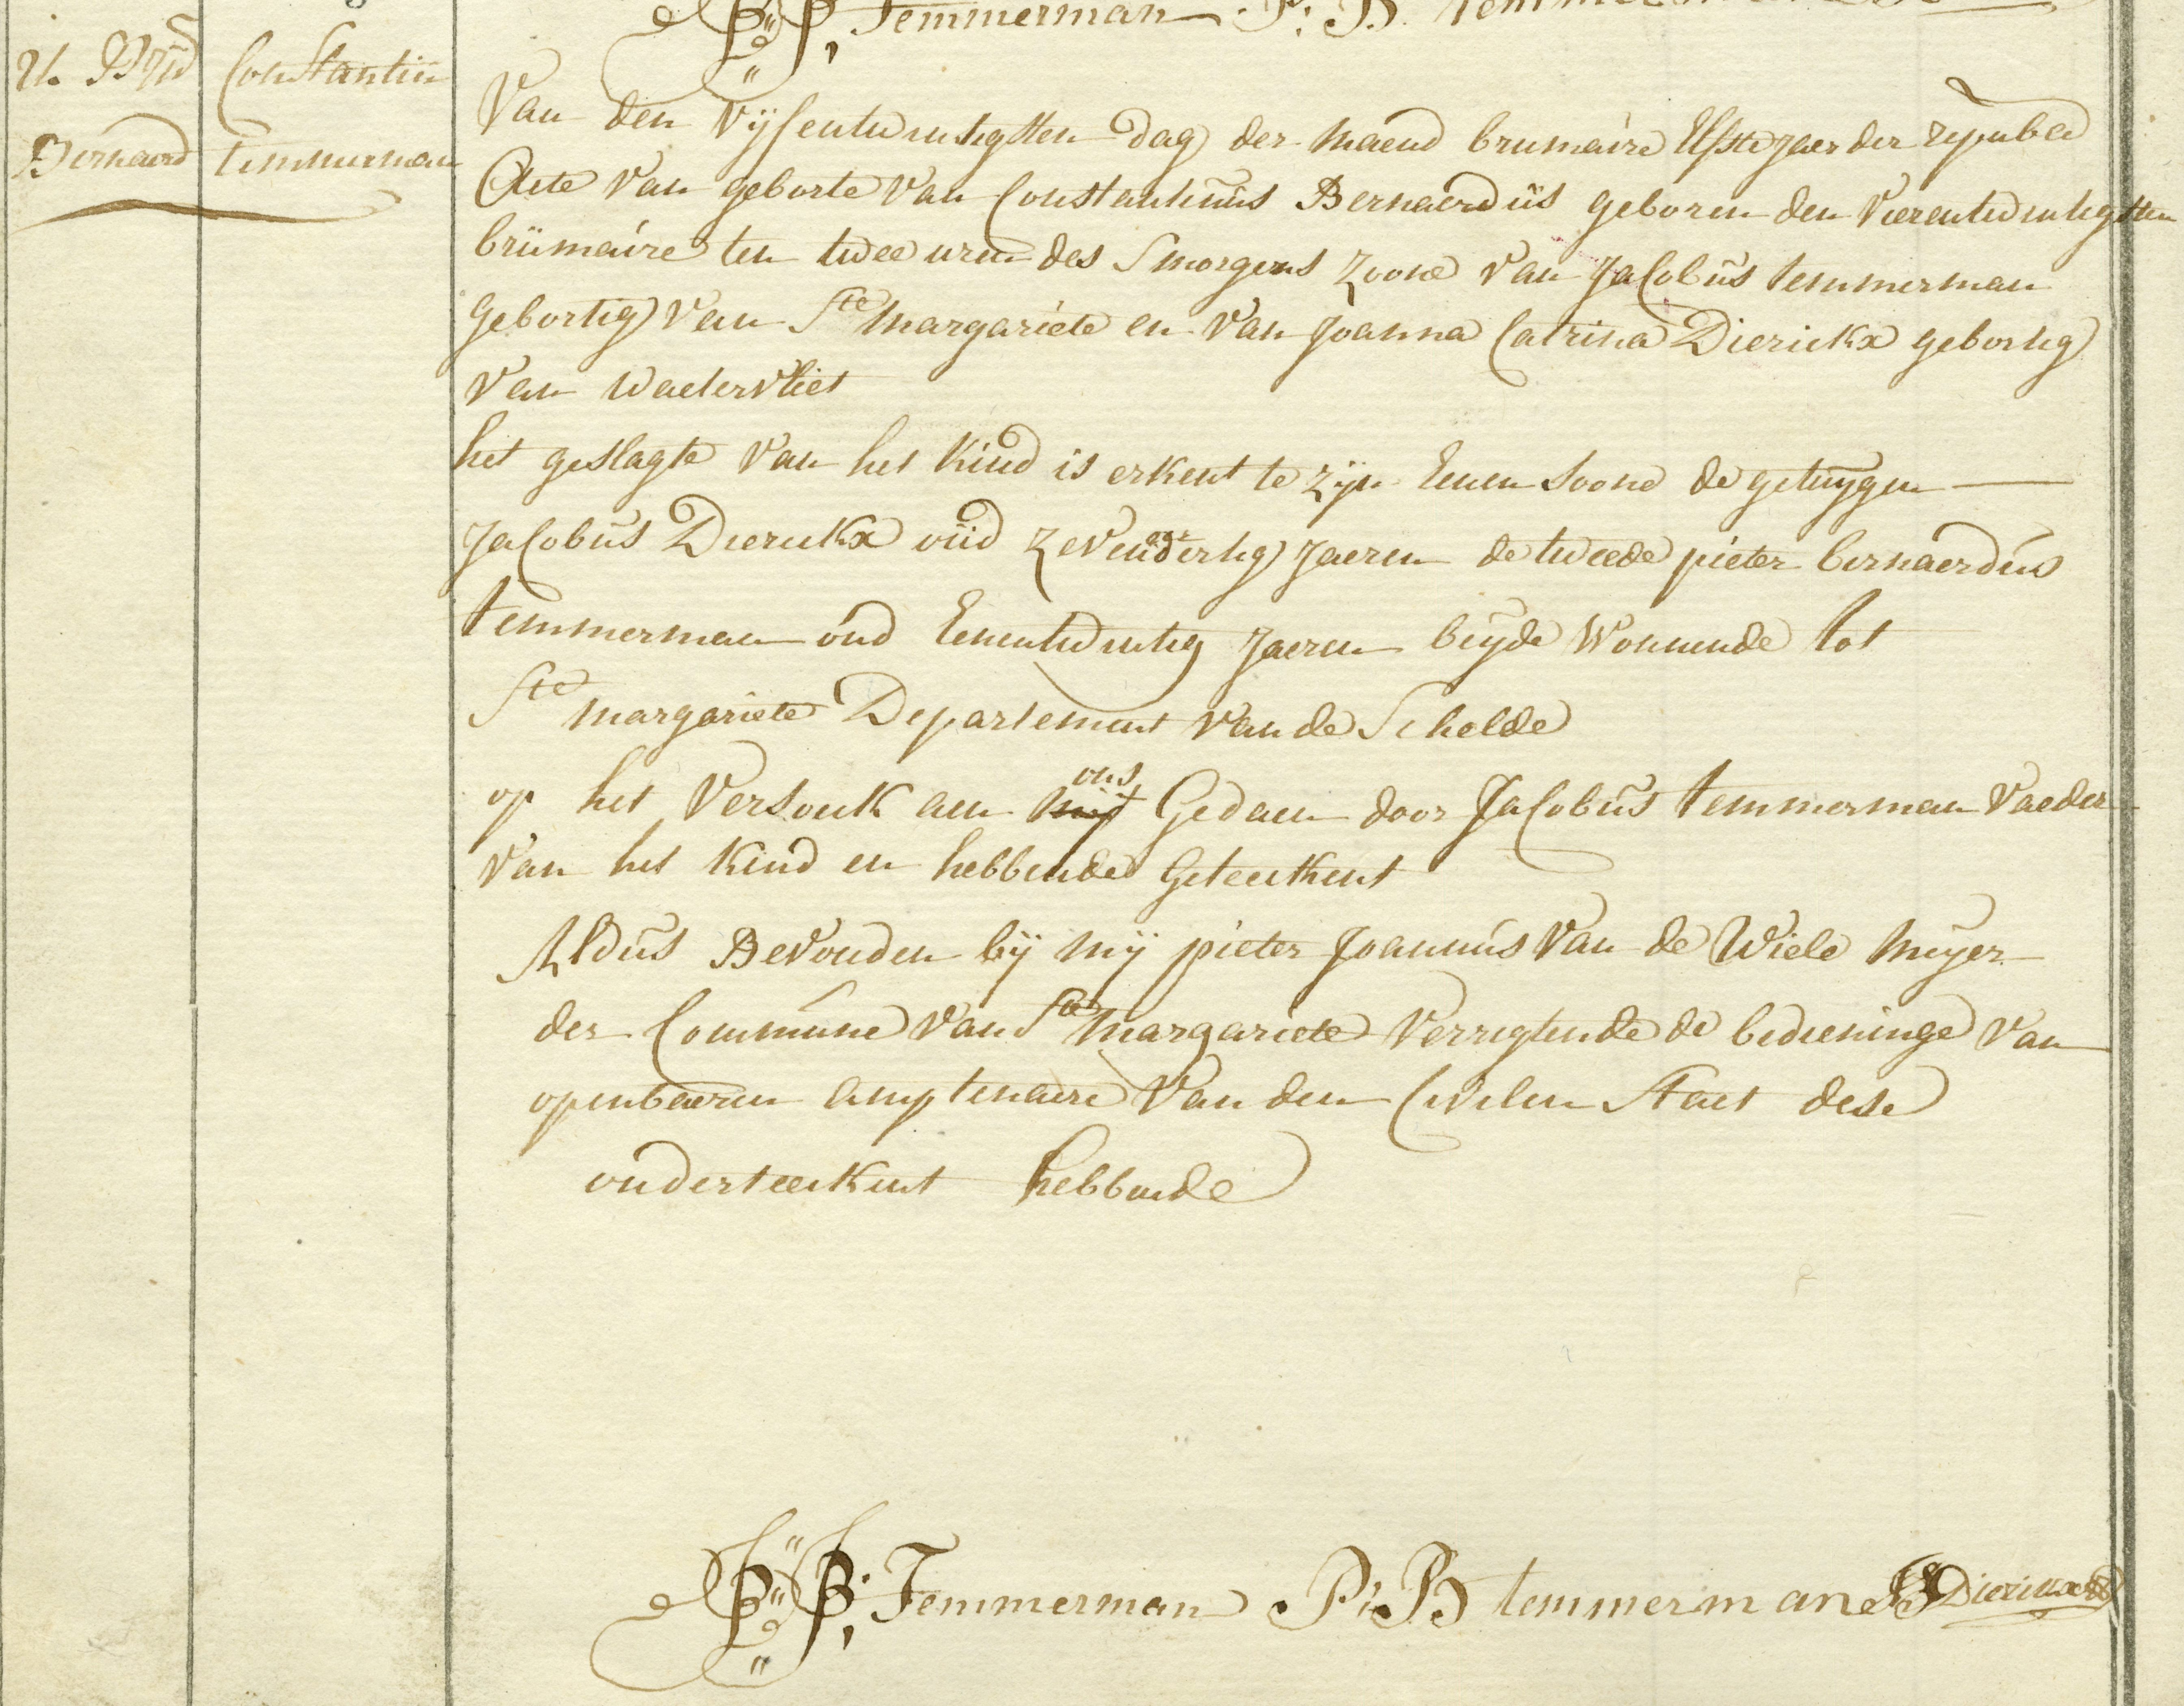 Temmerman P: B.
Constantin
Bernaerd temmerman
Van den Vijfentwintigsten Dag der maend brumaire Elfste jaer der republ
Acte van geborte van Constantinus Bernaerdus geboren den Vierentwintigsten
brumaire ten twee uren des Smorgens Zoone van Jacobus temmerman
Gebortig van Ste margariete en van Joanna Catrina Dierickx gebortig
van Waetervliet
het geslagte van het Kind is erkent te zijn Eenen Soone de getuygen
Jacobus Dierickx oud Zevenderlig Jaeren de tweede pieter bernaerdus
temmerman oud Eenentwintig Jaeren beyde Wonnende tot
Ste margariete Departement van de Schelde
ons
op het Versouk aen mij Gedaen door Jacobus temmerman Vaeder
van het Kind en hebbende Geteekent
Aldus Bevonden bij mij pieter Joannus Van de Wiele meyer
der Commune van Ste margariete Verrigtende de bedieninge van
openbaeren amptenaere van den Civilen Staet dese
onderteekent hebbende
Temmerman P: B temmerman Dierickx